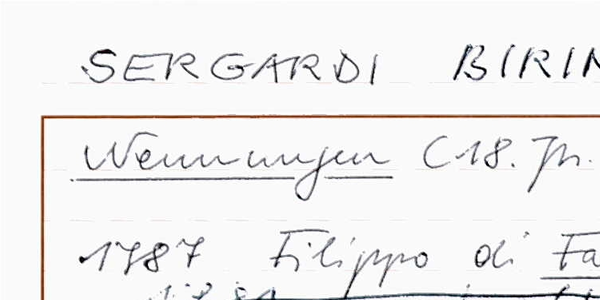 SERGARDI BIRIN
Nennungen (18. Jh.
1787 Filippo di Fa